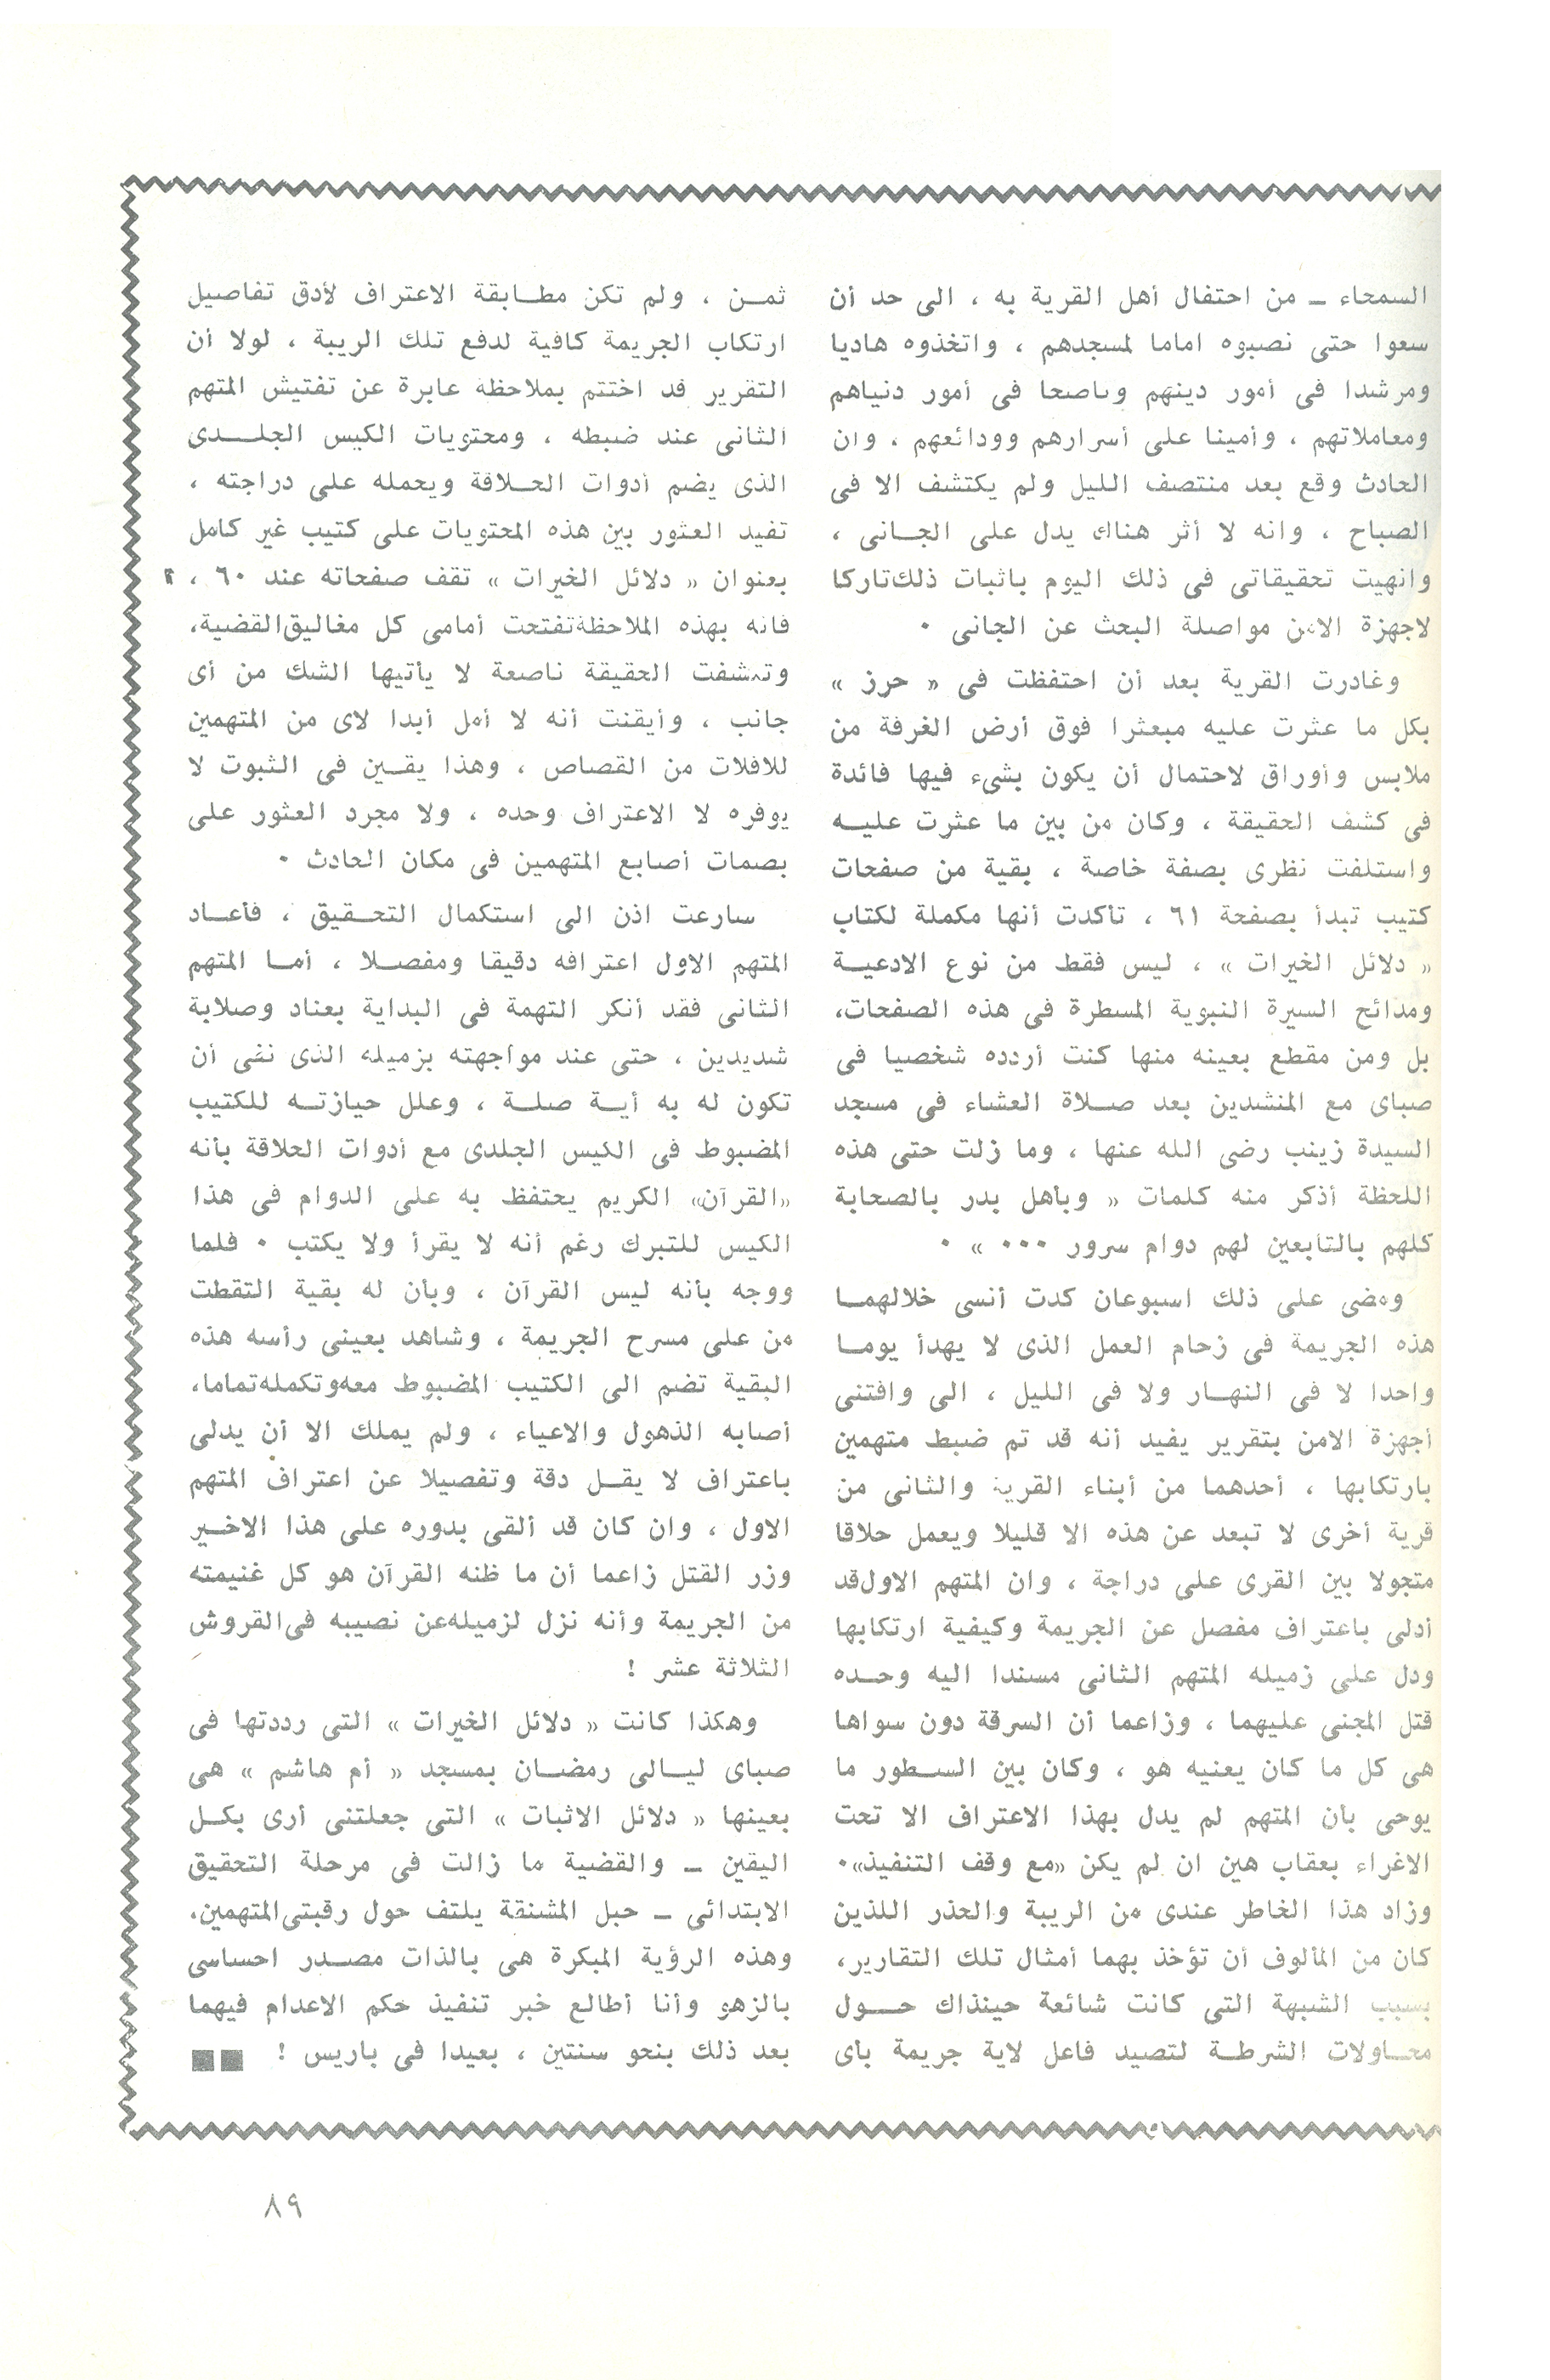 السمحاء ـ من احتفال أهل القرية به ، الى حد أن
سعوا حتى نصبوه اماما لمسجدهم ، واتخذوه هاديا
ومرشدا فى أمور دينهم وناصحا فى أمور دنياهم
ومعاملاتهم ، وأمينا على أسرارهم وودائعهم ، وان
الحادث وقع بعد منتصف الليل ولم يكتشف الا فى
الصباح ، وانه لا أثر هناك يدل على الجـانى ،
وانهيت تحقيقاتى فى ذلك اليوم باثبات ذلك تاركا
لاجهزة الامن مواصلة البحث عن الجانى ٠
وغادرت القرية بعد أن احتفظت فى « حرز »
بكل ما عثرت عليه مبعثرا فوق أرض الغرفة من
ملابس وأوراق لاحتمال أن يكون بشىء فيها فائدة
فى كشف الحقيقة ، وكان من بين ما عثرت عليـه
واستلفت نظرى بصفة خاصة ، بقية من صفحات
كتيب تبدأ بصفحة ٦١ ، تأكدت أنها مكملة لكتاب
« دلائل الخيرات » ، ليس فقط من نوع الادعيـة
ومدائح السيرة النبوية المسطرة فى هذه الصفحات،
بل ومن مقطع بعينه منها كنت أردده شخصيا فى
صباى مع المنشدين بعد صـلاة العشاء فى مسجد
السيدة زينب رضى الله عنها ، وما زلت حتى هذه
اللحظة أذكر منه كلمات « وبأهل بدر بالصحابة
كلهم بالتابعين لهم دوام سرور ٠٠٠ » ٠
ومضى على ذلك اسبوعان كدت أنسى خلالهمـا
هذه الجريمة فى زحام العمل الذى لا يهدأ يومـا
واحدا لا فى النهـار ولا فى الليل ، الى وافتنى
أجهزة الامن بتقرير يفيد أنه قد تم ضبط متهمين
بارتكابها ، أحدهما من أبناء القرية والثانى من
قرية أخرى لا تبعد عن هذه الا قليلا ويعمل حلاقا
متجولا بين القرى على دراجة ، وان المتهم الاول قد
أدلى باعتراف مفصل عن الجريمة وكيفية ارتكابها
ودل على زميله المتهم الثانى مسندا اليه وحـده
قتل المجنى عليهما ، وزاعما أن السرقة دون سواها
هى كل ما كان يعنيه هو ، وكان بين السـطور ما
يوحى بأن المتهم لم يدل بهذا الاعتراف الا تحت
الاغراء بعقاب هين ان لم يكن «مع وقف التنفيذ»٠
وزاد هذا الخاطر عندى من الريبة والحذر اللذين
كان من المألوف أن تؤخذ بهما أمثال تلك التقارير،
بسبب الشبهة التى كانت شائعة حينذاك حـول
محـاولات الشرطـة لتصيد فاعل لاية جريمة بأى
ثمـن ، ولم تكن مطـابقة الاعتراف لأدق تفاصيل
ارتكاب الجريمة كافية لدفع تلك الريبة ، لولا أن
التقرير قد اختتم بملاحظة عابرة عن تفتيش المتهم
الثانى عند ضبطه ، ومحتويات الكيس الجلـدى
الذى يضم أدوات الحـلاقة ويحمله على دراجته ،
تفيد العثور بين هذه المحتويات على كتيب غير كامل
بعنوان « دلائل الخيرات » تقف صفحاته عند ٦٠ ،
فانه بهذه الملاحظة تفتحت أمامى كل مغاليق القضية،
وتكشفت الحقيقة ناصعة لا يأتيها الشك من أى
جانب ، وأيقنت أنه لا أمل أبدا لاى من المتهمين
للافلات من القصاص ، وهذا يقـين فى الثبوت لا
يوفره لا الاعتراف وحده ، ولا مجرد العثور على
بصمات أصابع المتهمين فى مكان الحادث ٠
سارعت اذن الى استكمال التحـقيق ، فأعـاد
المتهم الاول اعترافه دقيقا ومفصـلا ، أمـا المتهم
الثانى فقد أنكر التهمة فى البداية بعناد وصلابة
شديدين ، حتى عند مواجهته بزميله الذى نفى أن
تكون له به أيـة صلـة ، وعلل حيازتـه للكتيب
المضبوط فى الكيس الجلدى مع أدوات الحلاقة بأنه
«القرآن» الكريم يحتفظ به على الدوام فى هذا
الكيس للتبرك رغم أنه لا يقرأ ولا يكتب ٠ فلما
ووجه بأنه ليس القرآن ، وبأن له بقية التقطت
من على مسرح الجريمة ، وشاهد بعينى رأسه هذه
البقية تضم الى الكتيب المضبوط معه وتكمله تماما،
أصابه الذهول والاعياء ، ولم يملك الا أن يدلى
باعتراف لا يقـل دقة وتفصيلا عن اعتراف المتهم
الاول ، وان كان قد ألقى بدوره على هذا الاخـير
وزر القتل زاعما أن ما ظنه القرآن هو كل غنيمته
من الجريمة وأنه نزل لزميله عن نصيبه فى القروش
الثلاثة عشر !
وهكذا كانت « دلائل الخيرات » التى رددتها فى
صباى ليـالى رمضـان بمسجد « أم هاشم » هى
بعينها « دلائل الاثبات » التى جعلتنى أرى بكـل
اليقين ـ والقضية ما زالت فى مرحلة التحقيق
الابتدائى ـ حبل المشنقة يلتف حول رقبتى المتهمين،
وهذه الرؤية المبكرة هى بالذات مصـدر احساسى
بالزهو وأنا أطالع خبر تنفيذ حكم الاعدام فيهما
بعد ذلك بنحو سنتين ، بعيدا فى باريس !
٨٩